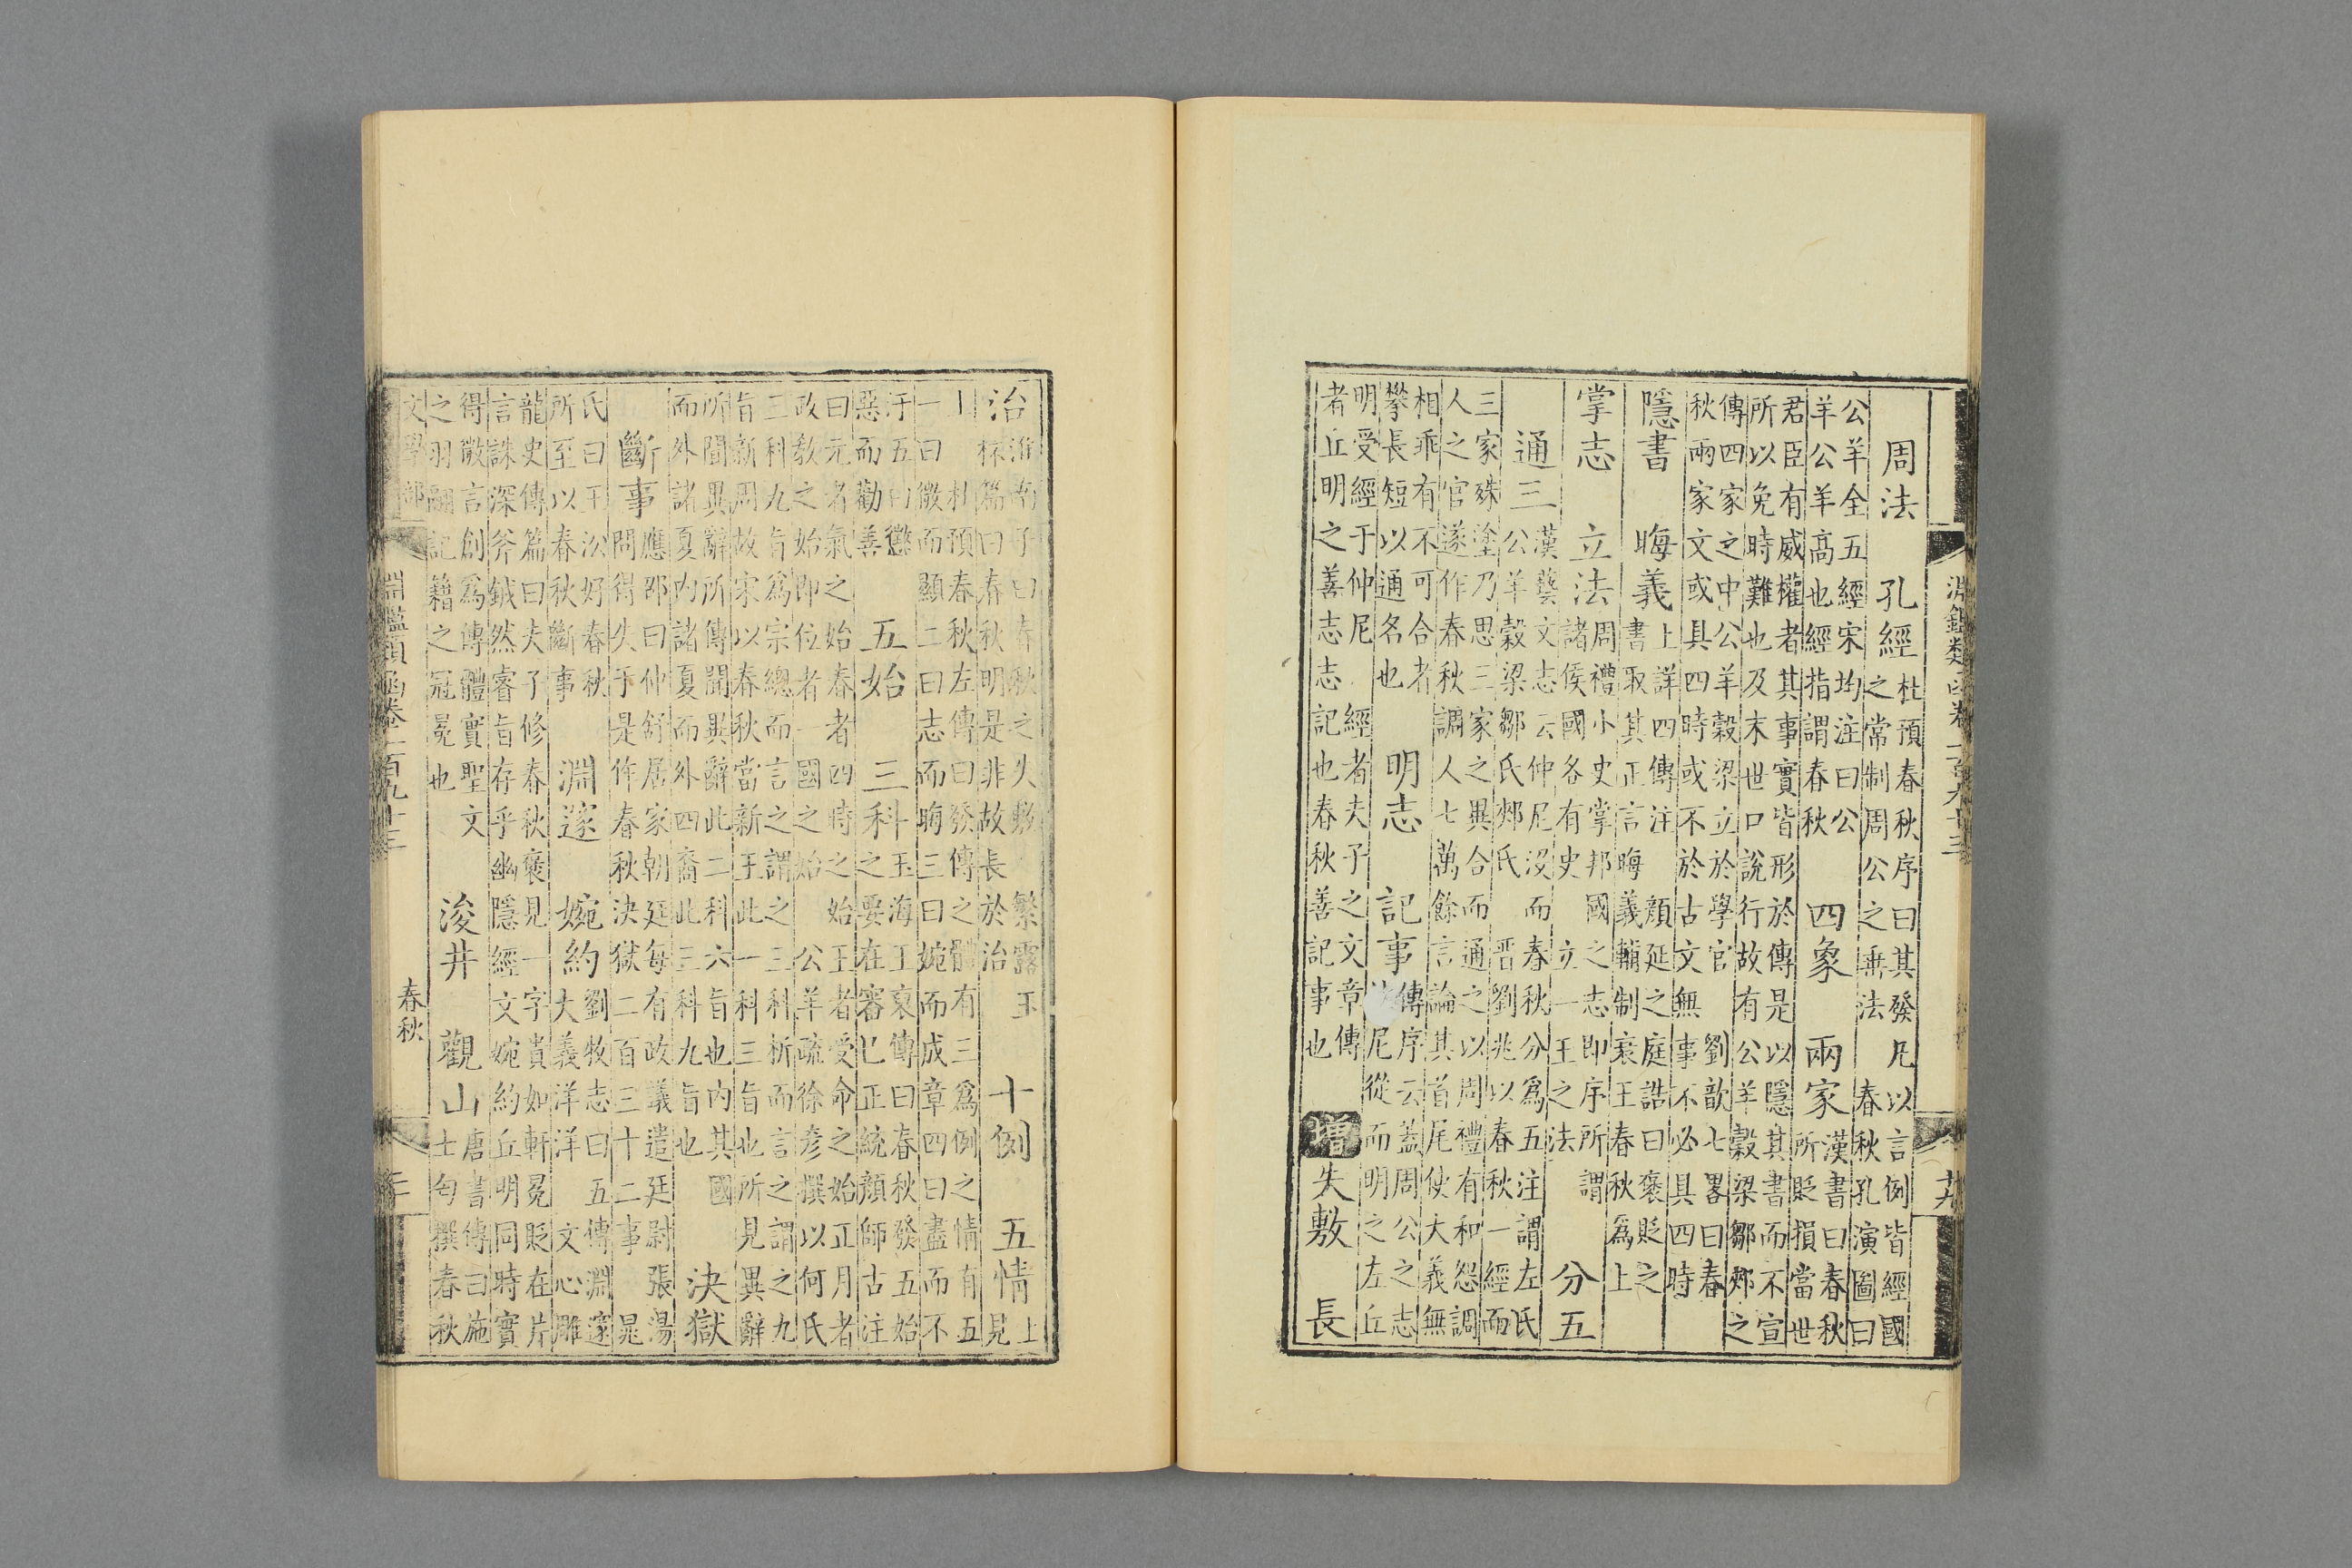 淵鑑類函卷一百九十三
十九
周法 孔經 杜預春秋序曰其發凡以言例皆經國之常制周公之垂法 春秋孔演圖曰
公羊全五經宋均注曰公羊公羊高也經指謂春秋 四象 兩家 漢書曰春秋所貶損當世
君臣有威權者其事實皆形於傳是以隱其書而不宣所以免時難也及末世口說行故有公羊穀梁鄒郟之
傳四家之中公羊穀梁立於學官 劉歆七畧曰春秋兩家文或具四時或不於古文無事不必具四時
隱書 晦義 上詳四傳注 顏延之庭誥曰褒貶之書取其正言晦義輔制衰王春秋爲上
掌志 立法 周禮小史掌邦國之志即序所謂諸侯國各有史 立一王之法 分五
通三 漢藝文志云仲尼沒而春秋分爲五注謂左氏公羊穀梁鄒氏郟氏 晋劉兆以春秋一經而
三家殊塗乃思三家之異合而通之以周禮有和怨調人之官遂作春秋調人七萬餘言論其首尾使大義無
相乖有不可合者攀長短以通名也 明志 記事 傳序云蓋周公之志尼從而明之左丘
明受經于仲尼 經者夫子之文章傳者丘明之善志志記也春秋善記事也 增 失敷 長
治 淮南子曰春秋之失敷 繁露玉杯篇曰春秋明是非故長於治 十例 五情 見上
上 杜預春秋左傳曰發傳之體有三爲例之情有五一曰微而顯二曰志而晦三曰婉而成章四曰盡而不
汙五曰懲惡而勸善 五始 三科 玉海王裒傳曰春秋發五始之要在審己正統顏師古注
曰元者氣之始春者四時之始王者受命之始正月者政教之始即位者一國之始 公羊疏徐彥撰以何氏
三科九旨爲宗總而言之謂之三科析而言之謂之九旨新周故宋以春秋當新王此一科三旨也所見異辭
所聞異辭所傳聞異辭此二科六旨也內其國而外諸夏內諸夏而外四裔此三科九旨也 決獄
斷事 應邵曰仲舒居家朝廷每有政議遣廷尉張湯問得失于是作春秋決獄二百三十二事 晁
氏曰王沿好春秋所至以春秋斷事 淵邃 婉約 劉牧志曰五傳淵邃大義洋洋 文心雕
龍史傳篇曰夫子修春秋褒見一字貴如軒冕貶在片言誅深斧鉞然睿旨存乎幽隱經文婉約丘明同時實
得微言創爲傳體實聖文之羽翮記籍之冠冕也 浚井 觀山 唐書傳曰施士匄撰春秋
文學部
淵鑑類函卷一百九十三
春秋
二十